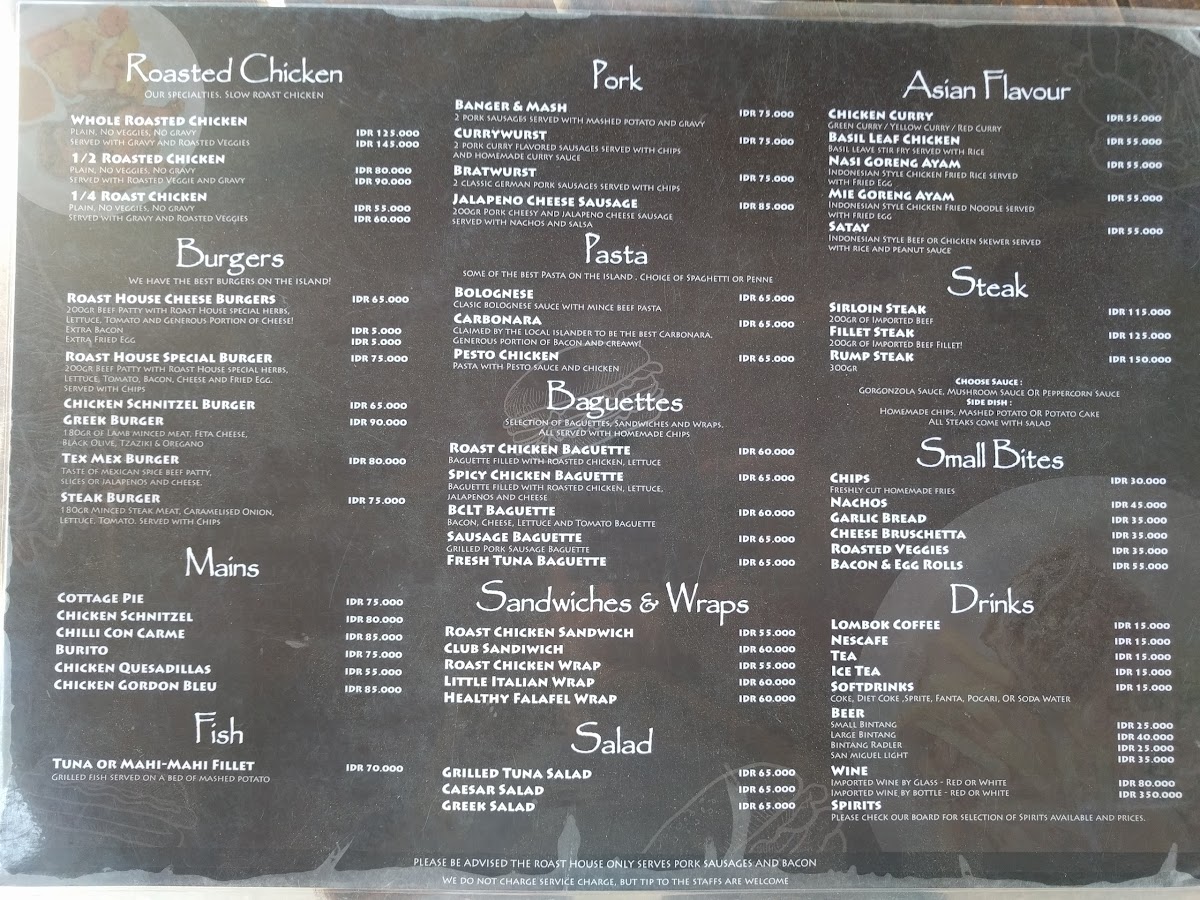 Roasted Chicken
Our specialties. Slow roast chicken
Whole Roasted Chicken
Plain, No veggies, No gravy IDR 125.000
Served with Gravy and Roasted Veggies IDR 145.000
1/2 Roasted Chicken
Plain, No veggies, No gravy IDR 80.000
Served with Roasted Veggie and Gravy IDR 90.000
1/4 Roast Chicken
Plain, No veggies, No gravy IDR 55.000
Served with Gravy and Roasted Veggies IDR 60.000
Burgers
We have the best burgers on the island!
Roast House Cheese Burgers IDR 65.000
200gr Beef Patty with Roast House special herbs,
Lettuce, Tomato and Generous Portion of Cheese!
Extra Bacon IDR 5.000
Extra Fried Egg IDR 5.000
Roast House Special Burger IDR 75.000
200gr Beef Patty with Roast House special herbs,
Lettuce, Tomato, Bacon, Cheese and Fried Egg.
Served with Chips
Chicken Schnitzel Burger IDR 65.000
Greek Burger IDR 90.000
180gr of Lamb minced meat, Feta Cheese,
Black Olive, Tzaziki & Oregano
Tex Mex Burger IDR 80.000
Taste of Mexican spice beef patty,
slices or jalapenos and cheese.
Steak Burger IDR 75.000
180gr Minced Steak Meat, Caramelised Onion,
Lettuce, Tomato. Served with Chips
Mains
Cottage Pie IDR 75.000
Chicken Schnitzel IDR 80.000
Chilli Con Carme IDR 85.000
Burito IDR 75.000
Chicken Quesadillas IDR 55.000
Chicken Gordon Bleu IDR 85.000
Fish
Tuna or Mahi-Mahi Fillet IDR 70.000
Grilled fish served on a bed of mashed potato
Pork
Banger & Mash IDR 75.000
2 pork sausages served with mashed potato and gravy
Currywurst IDR 75.000
2 pork curry flavored sausages served with chips
and homemade curry sauce
Bratwurst IDR 75.000
2 classic German pork sausages served with chips
Jalapeno Cheese Sausage IDR 85.000
200gr Pork cheesy and jalapeno cheese sausage
served with nachos and salsa
Pasta
some of the best Pasta on the island . Choice of Spaghetti or Penne
Bolognese IDR 65.000
Clasic bolognese sauce with mince beef pasta
Carbonara IDR 65.000
Claimed by the local islander to be the best carbonara,
generous portion of Bacon and creamy!
Pesto Chicken IDR 65.000
Pasta with Pesto sauce and chicken
Baguettes
Selection of Baguettes, Sandwiches and Wraps.
All served with homemade chips
Roast Chicken Baguette IDR 60.000
Baguette filled with roasted chicken, lettuce
Spicy Chicken Baguette IDR 65.000
Baguette filled with roasted chicken, lettuce,
jalapenos and cheese
BCLT Baguette IDR 60.000
Bacon, Cheese, Lettuce and Tomato Baguette
Sausage Baguette IDR 65.000
Grilled Pork Sausage Baguette
Fresh Tuna Baguette IDR 65.000
Sandwiches & Wraps
Roast Chicken Sandwich IDR 55.000
Club Sandiwich IDR 60.000
Roast Chicken Wrap IDR 55.000
Little Italian Wrap IDR 60.000
Healthy Falafel Wrap IDR 60.000
Salad
Grilled Tuna Salad IDR 65.000
Caesar Salad IDR 65.000
Greek Salad IDR 65.000
Asian Flavour
Chicken Curry IDR 55.000
Green Curry / Yellow Curry / Red Curry
Basil Leaf Chicken IDR 55.000
Basil leave stir fry served with Rice
Nasi Goreng Ayam IDR 55.000
Indonesian Style Chicken Fried Rice served
with Fried Egg
Mie Goreng Ayam IDR 55.000
Indonesian Style Chicken Fried Noodle served
with fried egg
Satay IDR 55.000
Indonesian Style Beef or Chicken Skewer served
with rice and peanut sauce
Steak
Sirloin Steak IDR 115.000
200gr of Imported Beef
Fillet Steak IDR 125.000
200gr of Imported Beef Fillet!
Rump Steak IDR 150.000
300gr
Choose Sauce :
Gorgonzola Sauce, Mushroom Sauce OR Peppercorn Sauce
Side Dish :
Homemade chips, Mashed potato OR Potato Cake
All steaks come with salad
Small Bites
Chips IDR 30.000
Freshly cut homemade fries
Nachos IDR 45.000
Garlic Bread IDR 35.000
Cheese Bruschetta IDR 35.000
Roasted Veggies IDR 35.000
Bacon & Egg Rolls IDR 55.000
Drinks
Lombok Coffee IDR 15.000
Nescafe IDR 15.000
Tea IDR 15.000
Ice Tea IDR 15.000
Softdrinks IDR 15.000
Coke, Diet Coke ,Sprite, Fanta, Pocari, OR Soda Water
Beer
Small Bintang IDR 25.000
Large Bintang IDR 40.000
Bintang Radler IDR 25.000
San Miguel Light IDR 35.000
Wine
Imported Wine by Glass - Red or White IDR 80.000
Imported wine by bottle - red or white IDR 350.000
Spirits
Please check our board for selection of Spirits available and prices.
Please be advised the Roast House only serves pork sausages and bacon
We do not charge service charge, but tip to the staffs are welcome